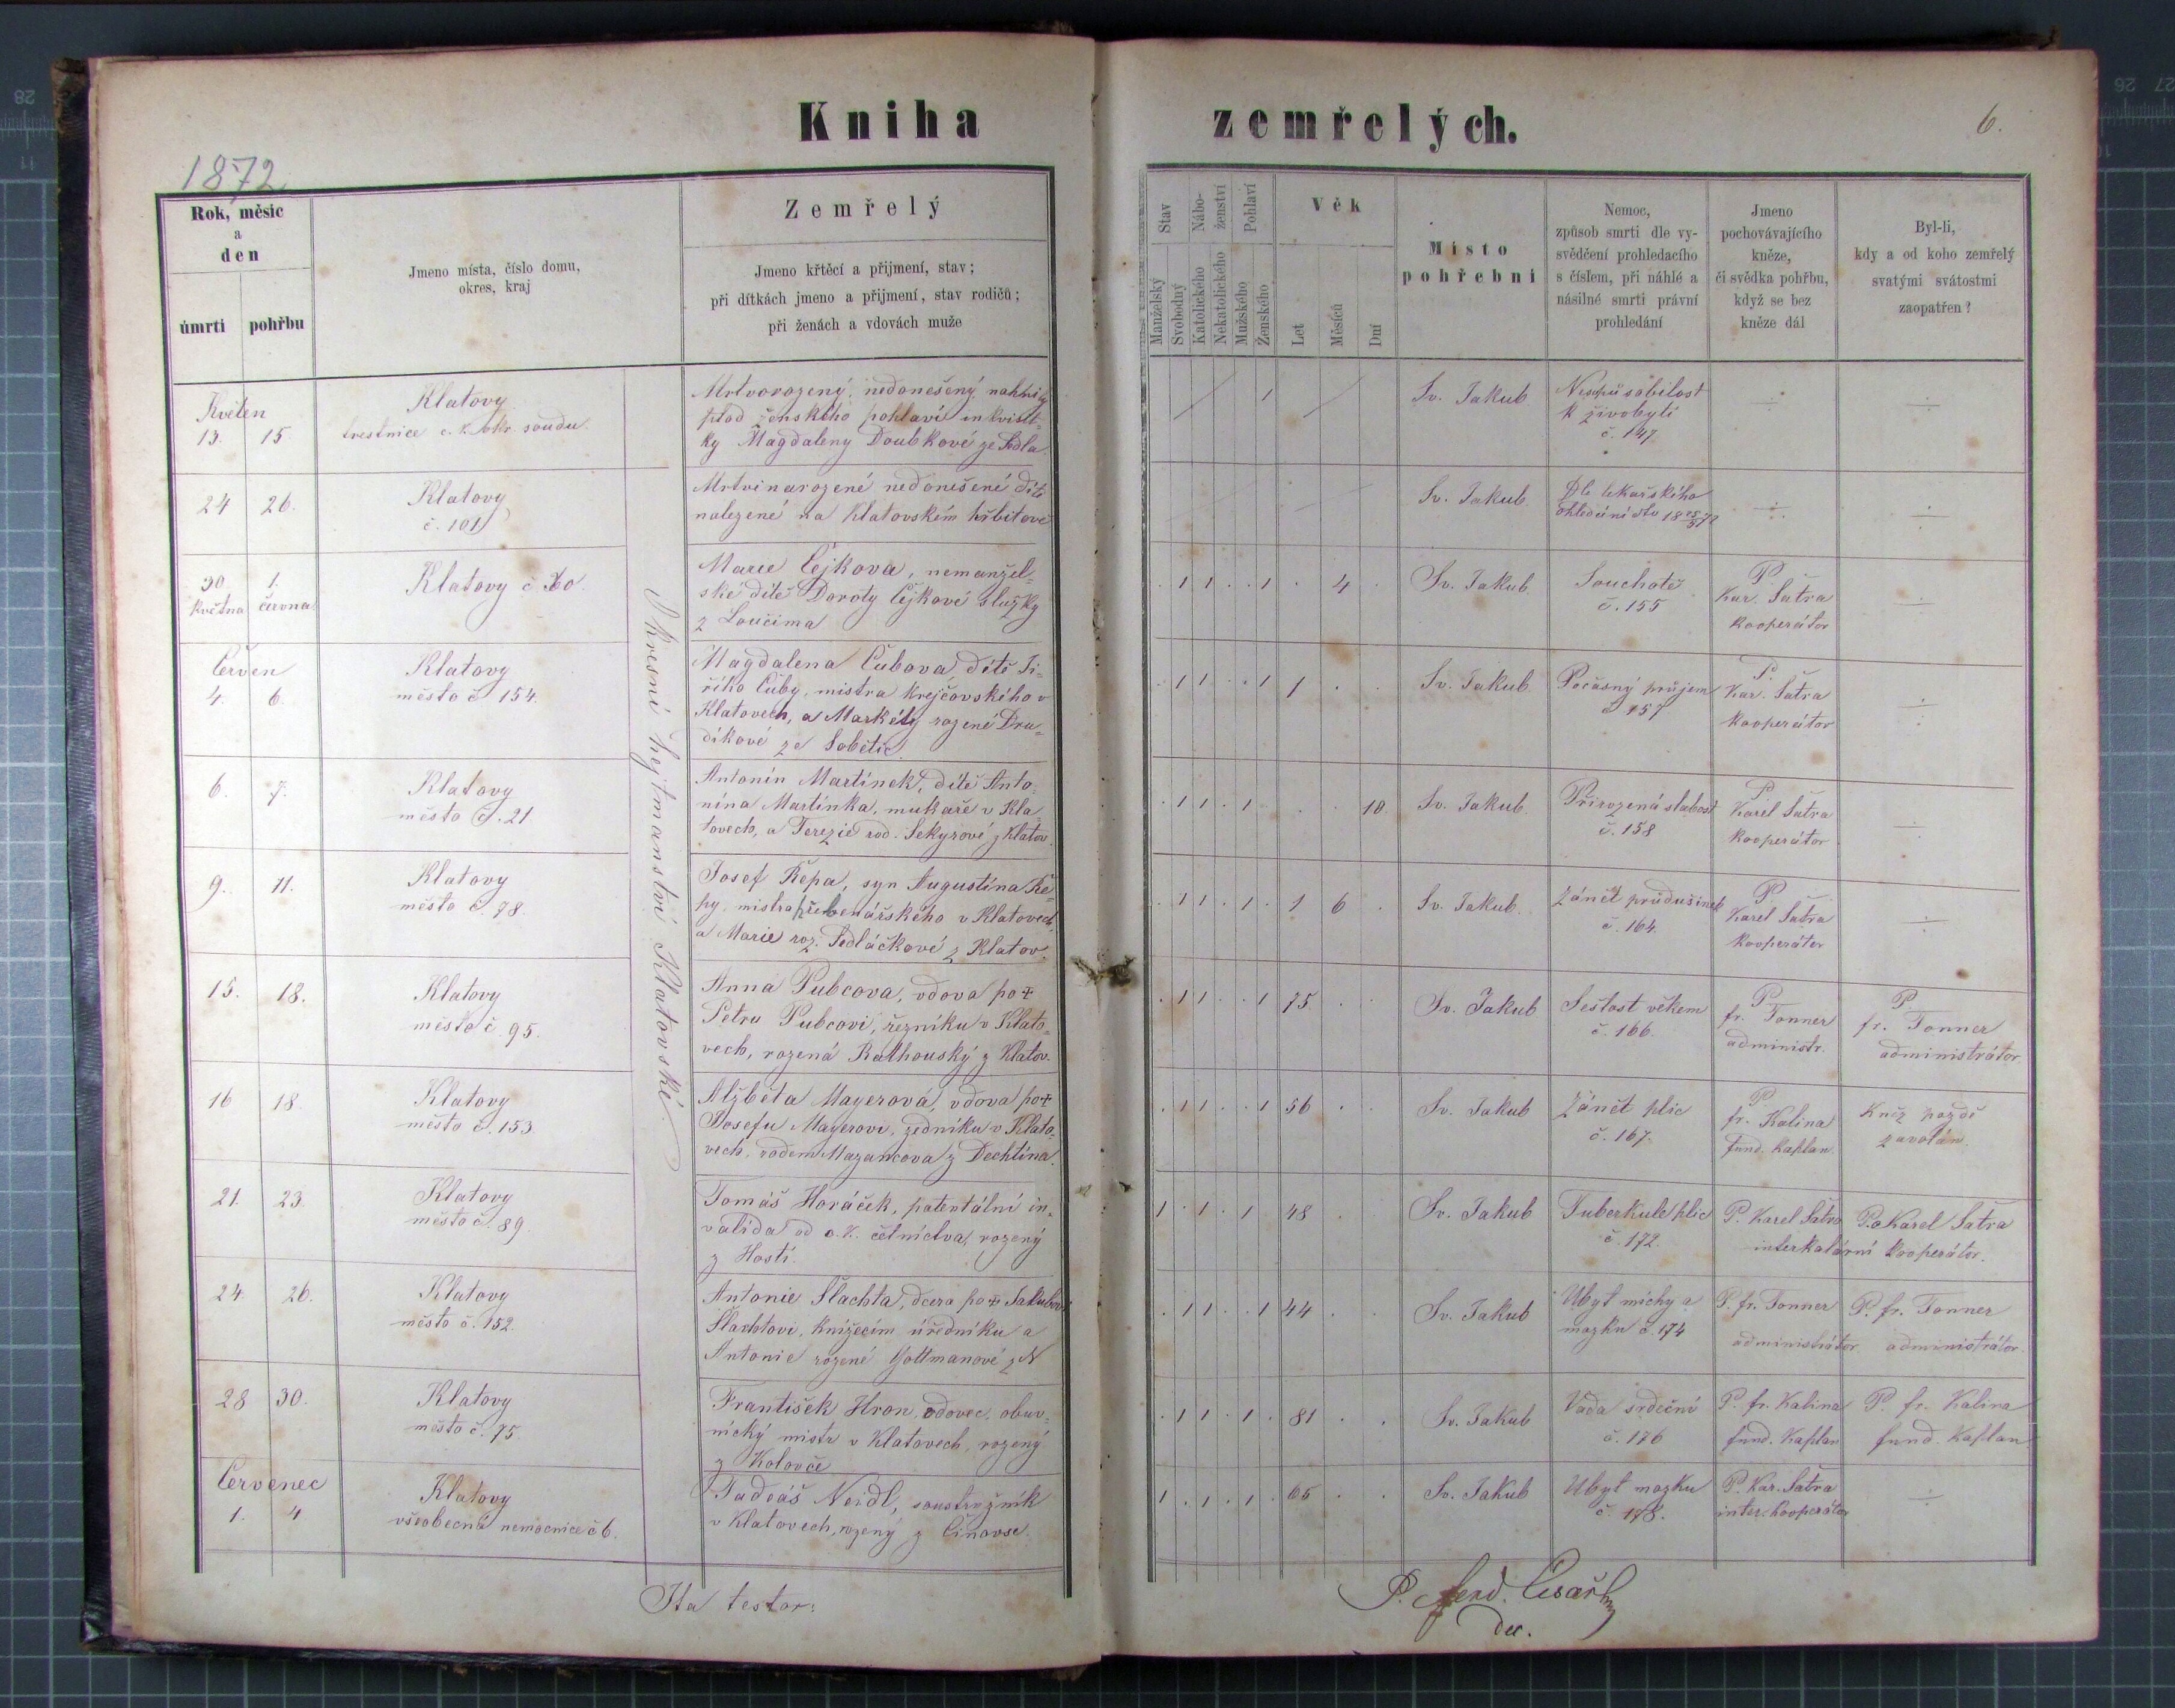 Kniha zemřelých.
6.
1872
Rok, měsíc
a
den
úmrti
pohřbu
Jmeno místa, číslo domu,
okres, kraj
Zemřelý
Jmeno křtěcí a přijmení, stav;
při dítkách jmeno a přijmení, stav rodičů;
při ženách a vdovách muže
Stav
Manželský
Svobodný
Nábo-
ženství
Katolického
Nekatolického
Pohlaví
Mužského
Ženského
Věk
Let
Měsíců
Dní
Místo
pohřební
Nemoc,
způsob smrti dle vy-
svědčení prohledacího
s číslem, při náhlé a
násilné smrti právní
prohledání
Jmeno
pochovávajícího
kněze,
či svědka pohřbu,
když se bez
kněze dál
Byl-li,
kdy a od koho zemřelý
svatými svátostmi
zaopatřen?
Okresní hejtmanství Klatovské
Květen
13. 15.
Klatovy
trestnice c. k. okr. soudu.
Mrtvorozený, nedonešený
plod ženského pohlaví inkvisit-
ky Magdaleny Doubkové ze Sedla.
1
Sv. Jakub
Neschůsobilost
k živobytí
č. 147.
÷ ÷
24 26.
Klatovy
č. 101
Mrtvinarozené nedonešené dítě
nalezené na Klatovském hřbitově
Sv. Jakub
Dle lekařského
ohledání dto 18 25/5 72
÷ ÷
30 1.
května června
Klatovy č
Marie Čejkova, nemanžel-
ské dítě Doroty Čejkové služky
z Loučima
1 1 1 4
Sv. Jakub
Souchotě
č. 155
P.
Kar. Šatra
kooperátor
÷
Červen
4. 6.
Klatovy
město č 154.
Magdalena Čubova, dítě Ji-
řího Čuby, mistra krejčovského v
Klatovech, a Markéty rozené Dru-
díkové ze Sobětic
1 1 1 1
Sv. Jakub
Počasný průjem
č 157
P.
Kar. Šatra
kooperátor
÷
6. 7.
Klatovy
město č. 21
Antonín Martínek, dítě Anto-
nína Martínka, mukaře v Kla-
tovech, a Terezie rod. Sekyrové z Klatov.
1 1 1 10
Sv. Jakub
Přirozená slabost
č. 158
P
Karel Šatra
kooperátor
÷
9. 11.
Klatovy
město č. 78.
Josef Řepa, syn Augustina Ře-
py, mistra hřebenářského v Klatovech,
a Marie roz. Sedláčkové z Klatov.
1 1 1 1 6
Sv. Jakub
Zánět průdušinek
č. 164.
P.
Karel Šatra
kooperátor
÷
15. 18.
Klatovy
město č 95.
Anna Pubcova, vdova po +
Petru Pubcovi, řezníku v Klato-
vech, rozená Rathouský z Klatov.
1 1 1 75
Sv. Jakub
Sešlost věkem
č. 166
P.
fr. Tonner
administr.
P.
fr. Tonner
administrátor
16 18
Klatovy
město č. 153
Alžběta Mayerová, vdova po +
Josefu Mayerovi, zedníku v Klato-
vech, rodem Mazancova z Dechtína.
1 1 1 56
Sv. Jakub
Zánět plic
č. 167.
P
fr. Kalina
fund. kaplan.
Kněz pozdě
zavolán.
21. 23.
Klatovy
město č. 89.
Tomáš Horáček, patentální in-
valida od c. k. četnictva, rozený
z Hostí.
1 1 1 48
Sv. Jakub
Tuberkule plic
č. 172.
P. Karel Šatra P. Karel Šatra
interkalární kooperátor.
24 26.
Klatovy
město č. 152.
Antonie Šlachta, dcera po + Jakubovi
Šlachtovi, knížecím úředníku a
Antonie rozené Gottmanové z N
1 1 1 44
Sv. Jakub
Ubyt míchy a
mozku č. 174
P. fr. Tonner P. fr. Tonner
administrátor administrátor.
28 30.
Klatovy
město č. 75.
František Hron, vdovec, obuv-
nický mistr v Klatovech, rozený
z Kolovče
1 1 1 81
Sv. Jakub
Vada srdeční
č. 176
P. fr. Kalina P. fr. Kalina
fund. Kaplan fund. Kaplan
Červenec
1. 4
Klatovy
všeobecná nemocnice č 6.
Tadeáš Neidl, soustružník
v Klatovech, rozený z Činovse.
1 1 1 65
Sv. Jakub
Ubyt mozku
č. 178.
P. Kar. Šatra
inter. kooperátor
÷
Ita testor:
P. Ferd. Císař
dec.